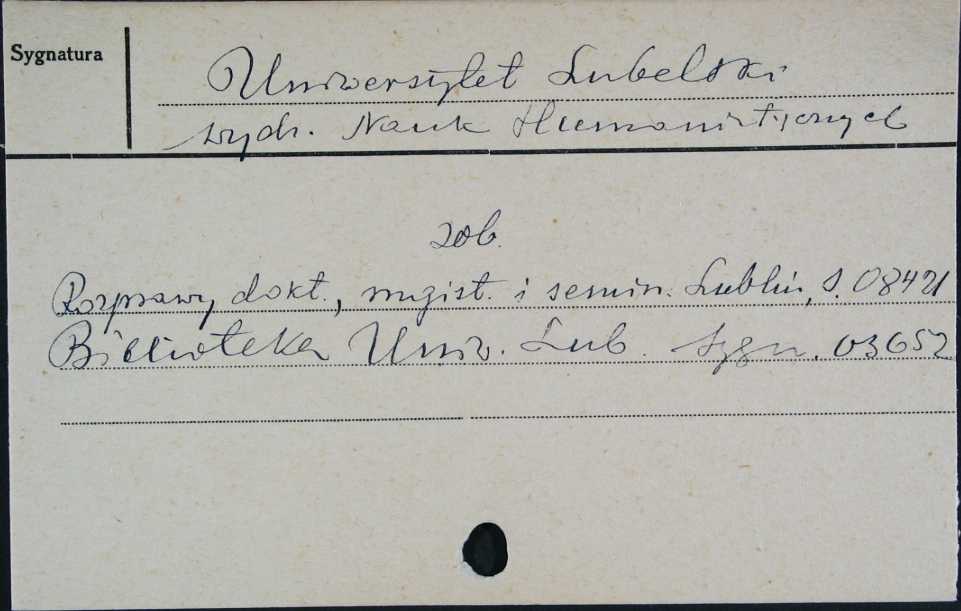 Sygnatura
Uniwersytet Lubelski
wydz. Nauk Humanistycznych
zob.
Rozprawy dokt., magist. i semin. Lublin, S. 08421
Biblioteka Uniw. Lub. Sygn. 03652